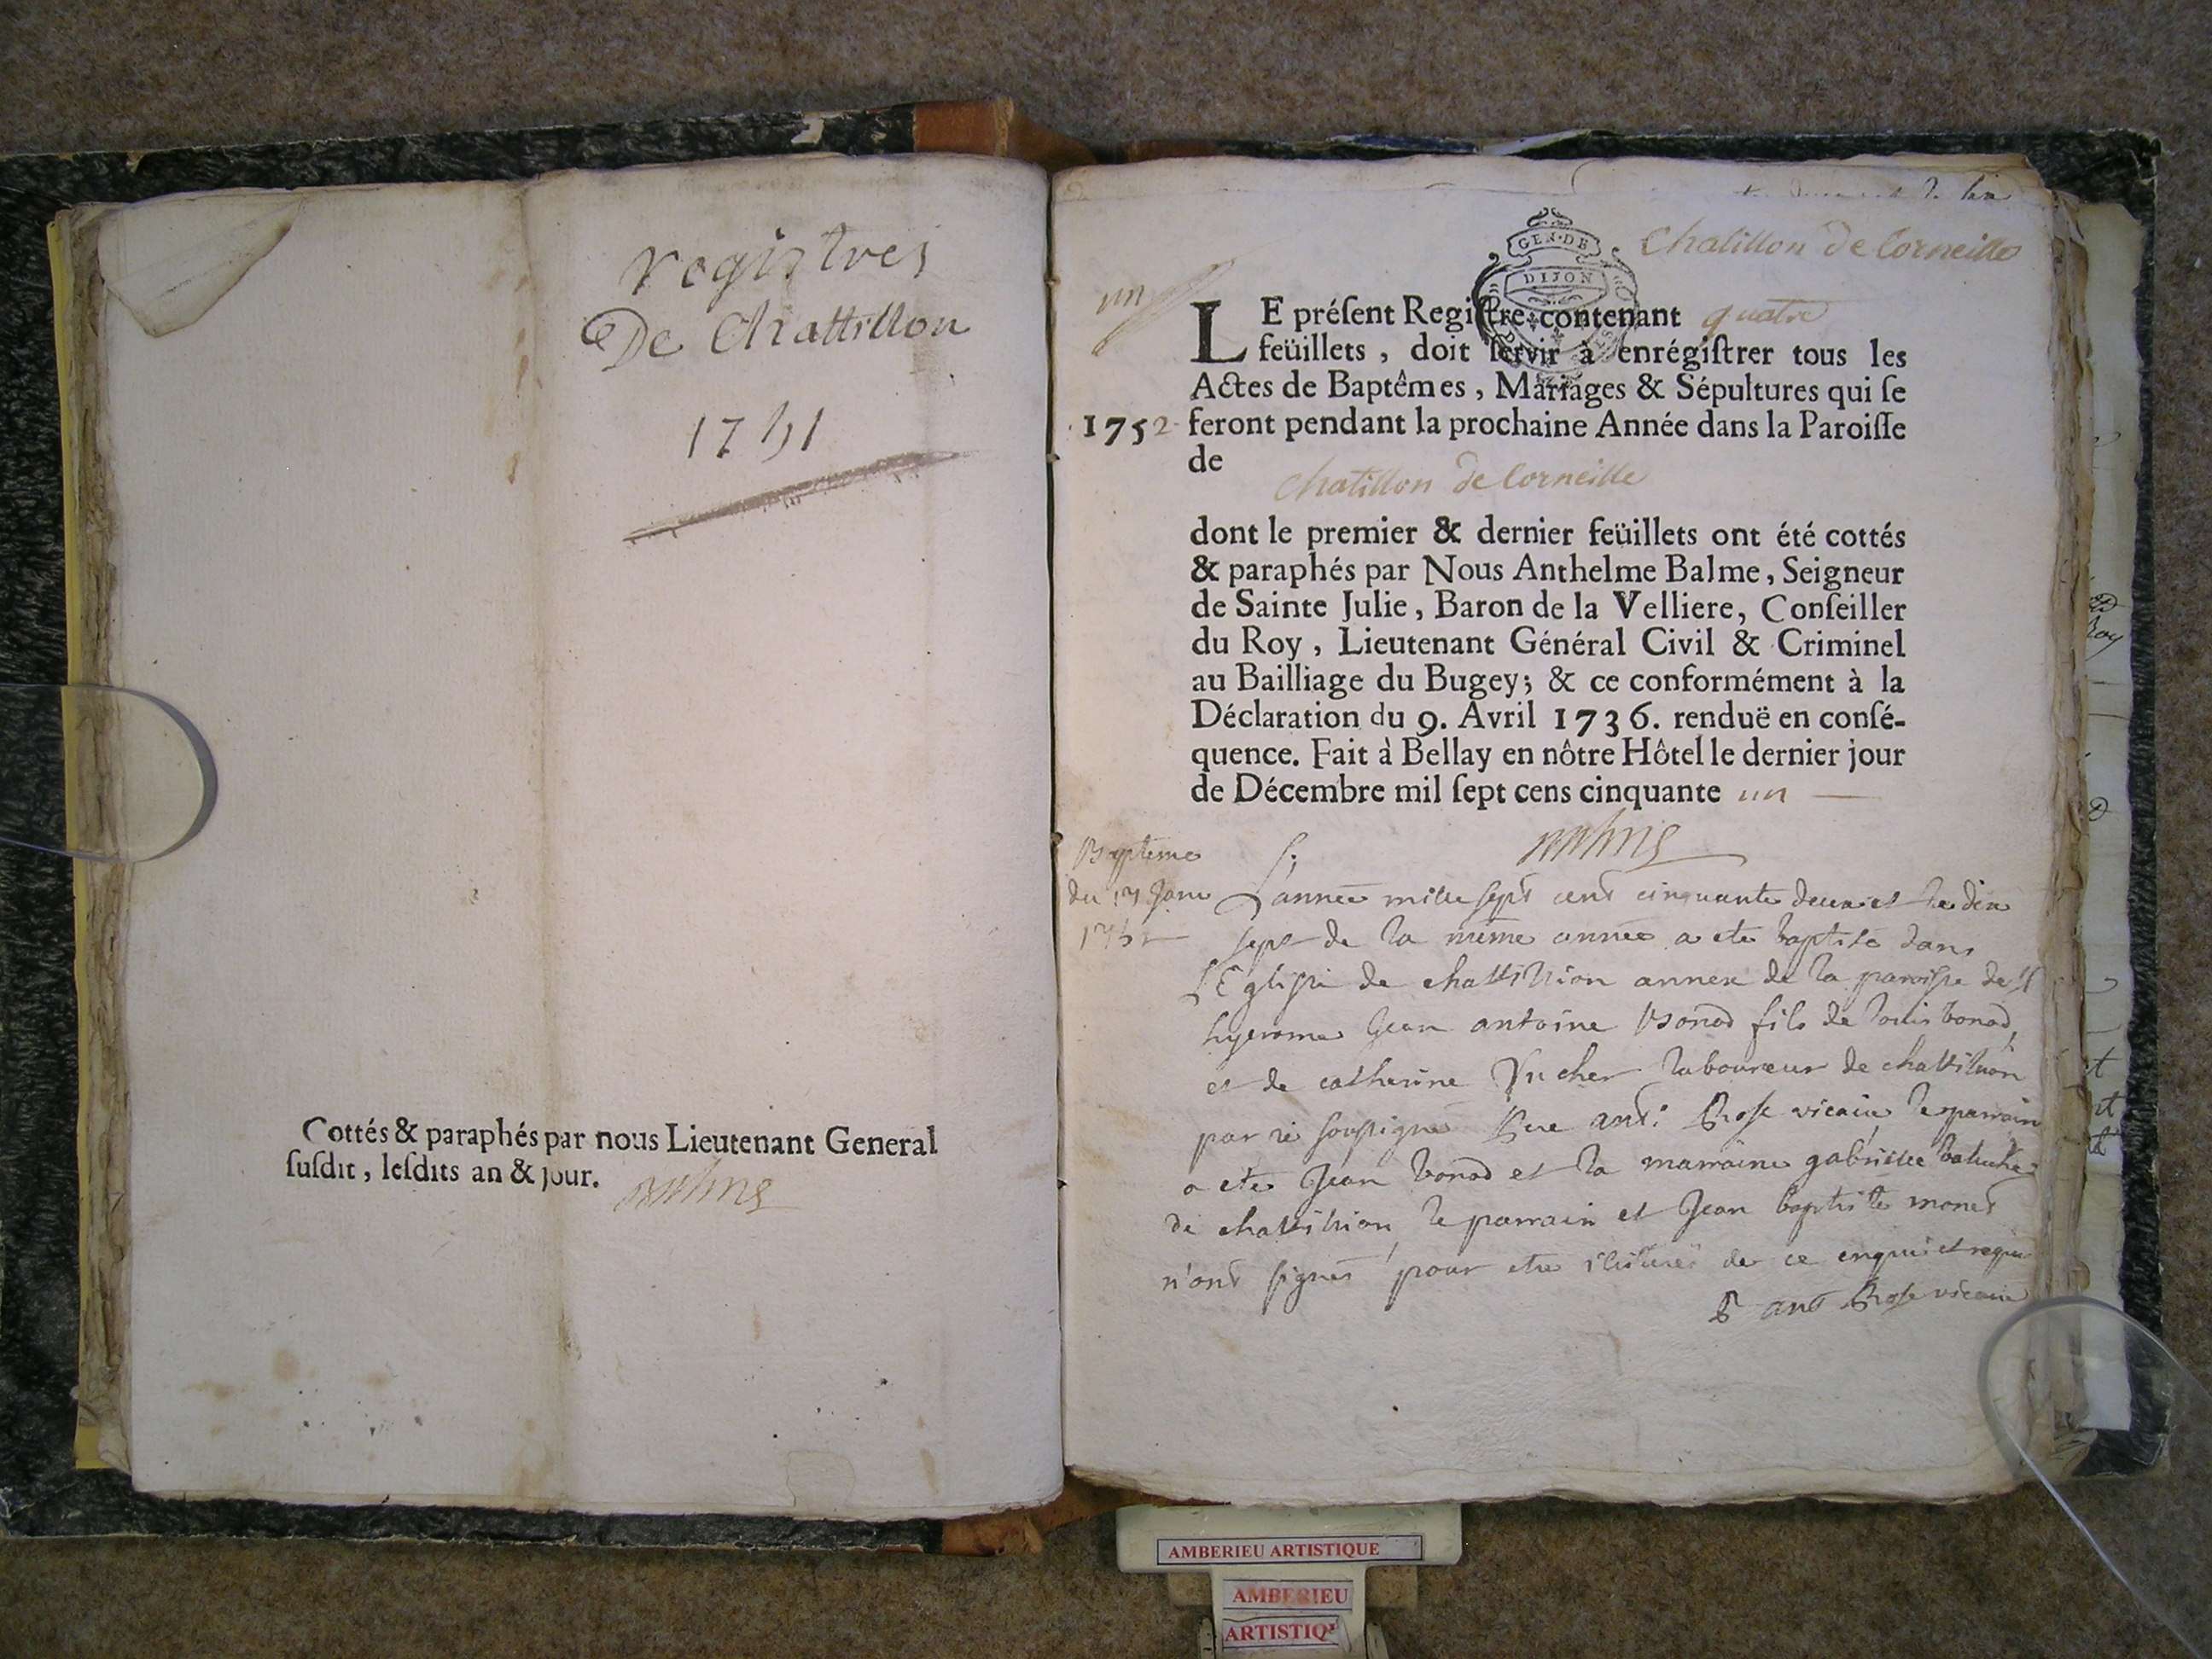 registres
De Chattillon
1751
Cottés & paraphés par nous Lieutenant General
susdit, lesdits an & jour.
Chatillon de Corneille
GEN·DE
DIJON
un
LE présent Registre contenant quatre
feüillets, doit servir à enrégistrer tous les
Actes de Baptêmes, Mariages & Sépultures qui se
1752 feront pendant la prochaine Année dans la Paroisse
de
Chatillon de Corneille
dont le premier & dernier feüillets ont été cottés
& paraphés par Nous Anthelme Balme, Seigneur
de Sainte Julie, Baron de la Velliere, Conseiller
du Roy, Lieutenant Général Civil & Criminel
au Bailliage du Bugey; & ce conformément à la
Déclaration du 9. Avril 1736. renduë en consé-
quence. Fait à Bellay en nôtre Hôtel le dernier jour
de Décembre mil sept cens cinquante un
Bapteme
du 17 Janv
1752
L'année mille sept cent cinquante deux et le dix
sept de la même année a ete baptisé dans
L'Eglise de chattillion annexe de la paroisse de St
hyerome Jean antoine Bonod fils de louis bonod,
et de catherine Vucher laboureur de chattillion
par soussigné ant: Rose vicaire le parrain
a ete Jean bonod et la marraine gabrielle
de chattillion le parrain et Jean baptiste monet
n'ont signés pour etre de ce enquis et requis
ant Rose vicaire
AMBERIEU ARTISTIQUE
AMBERIEU
ARTISTIQ